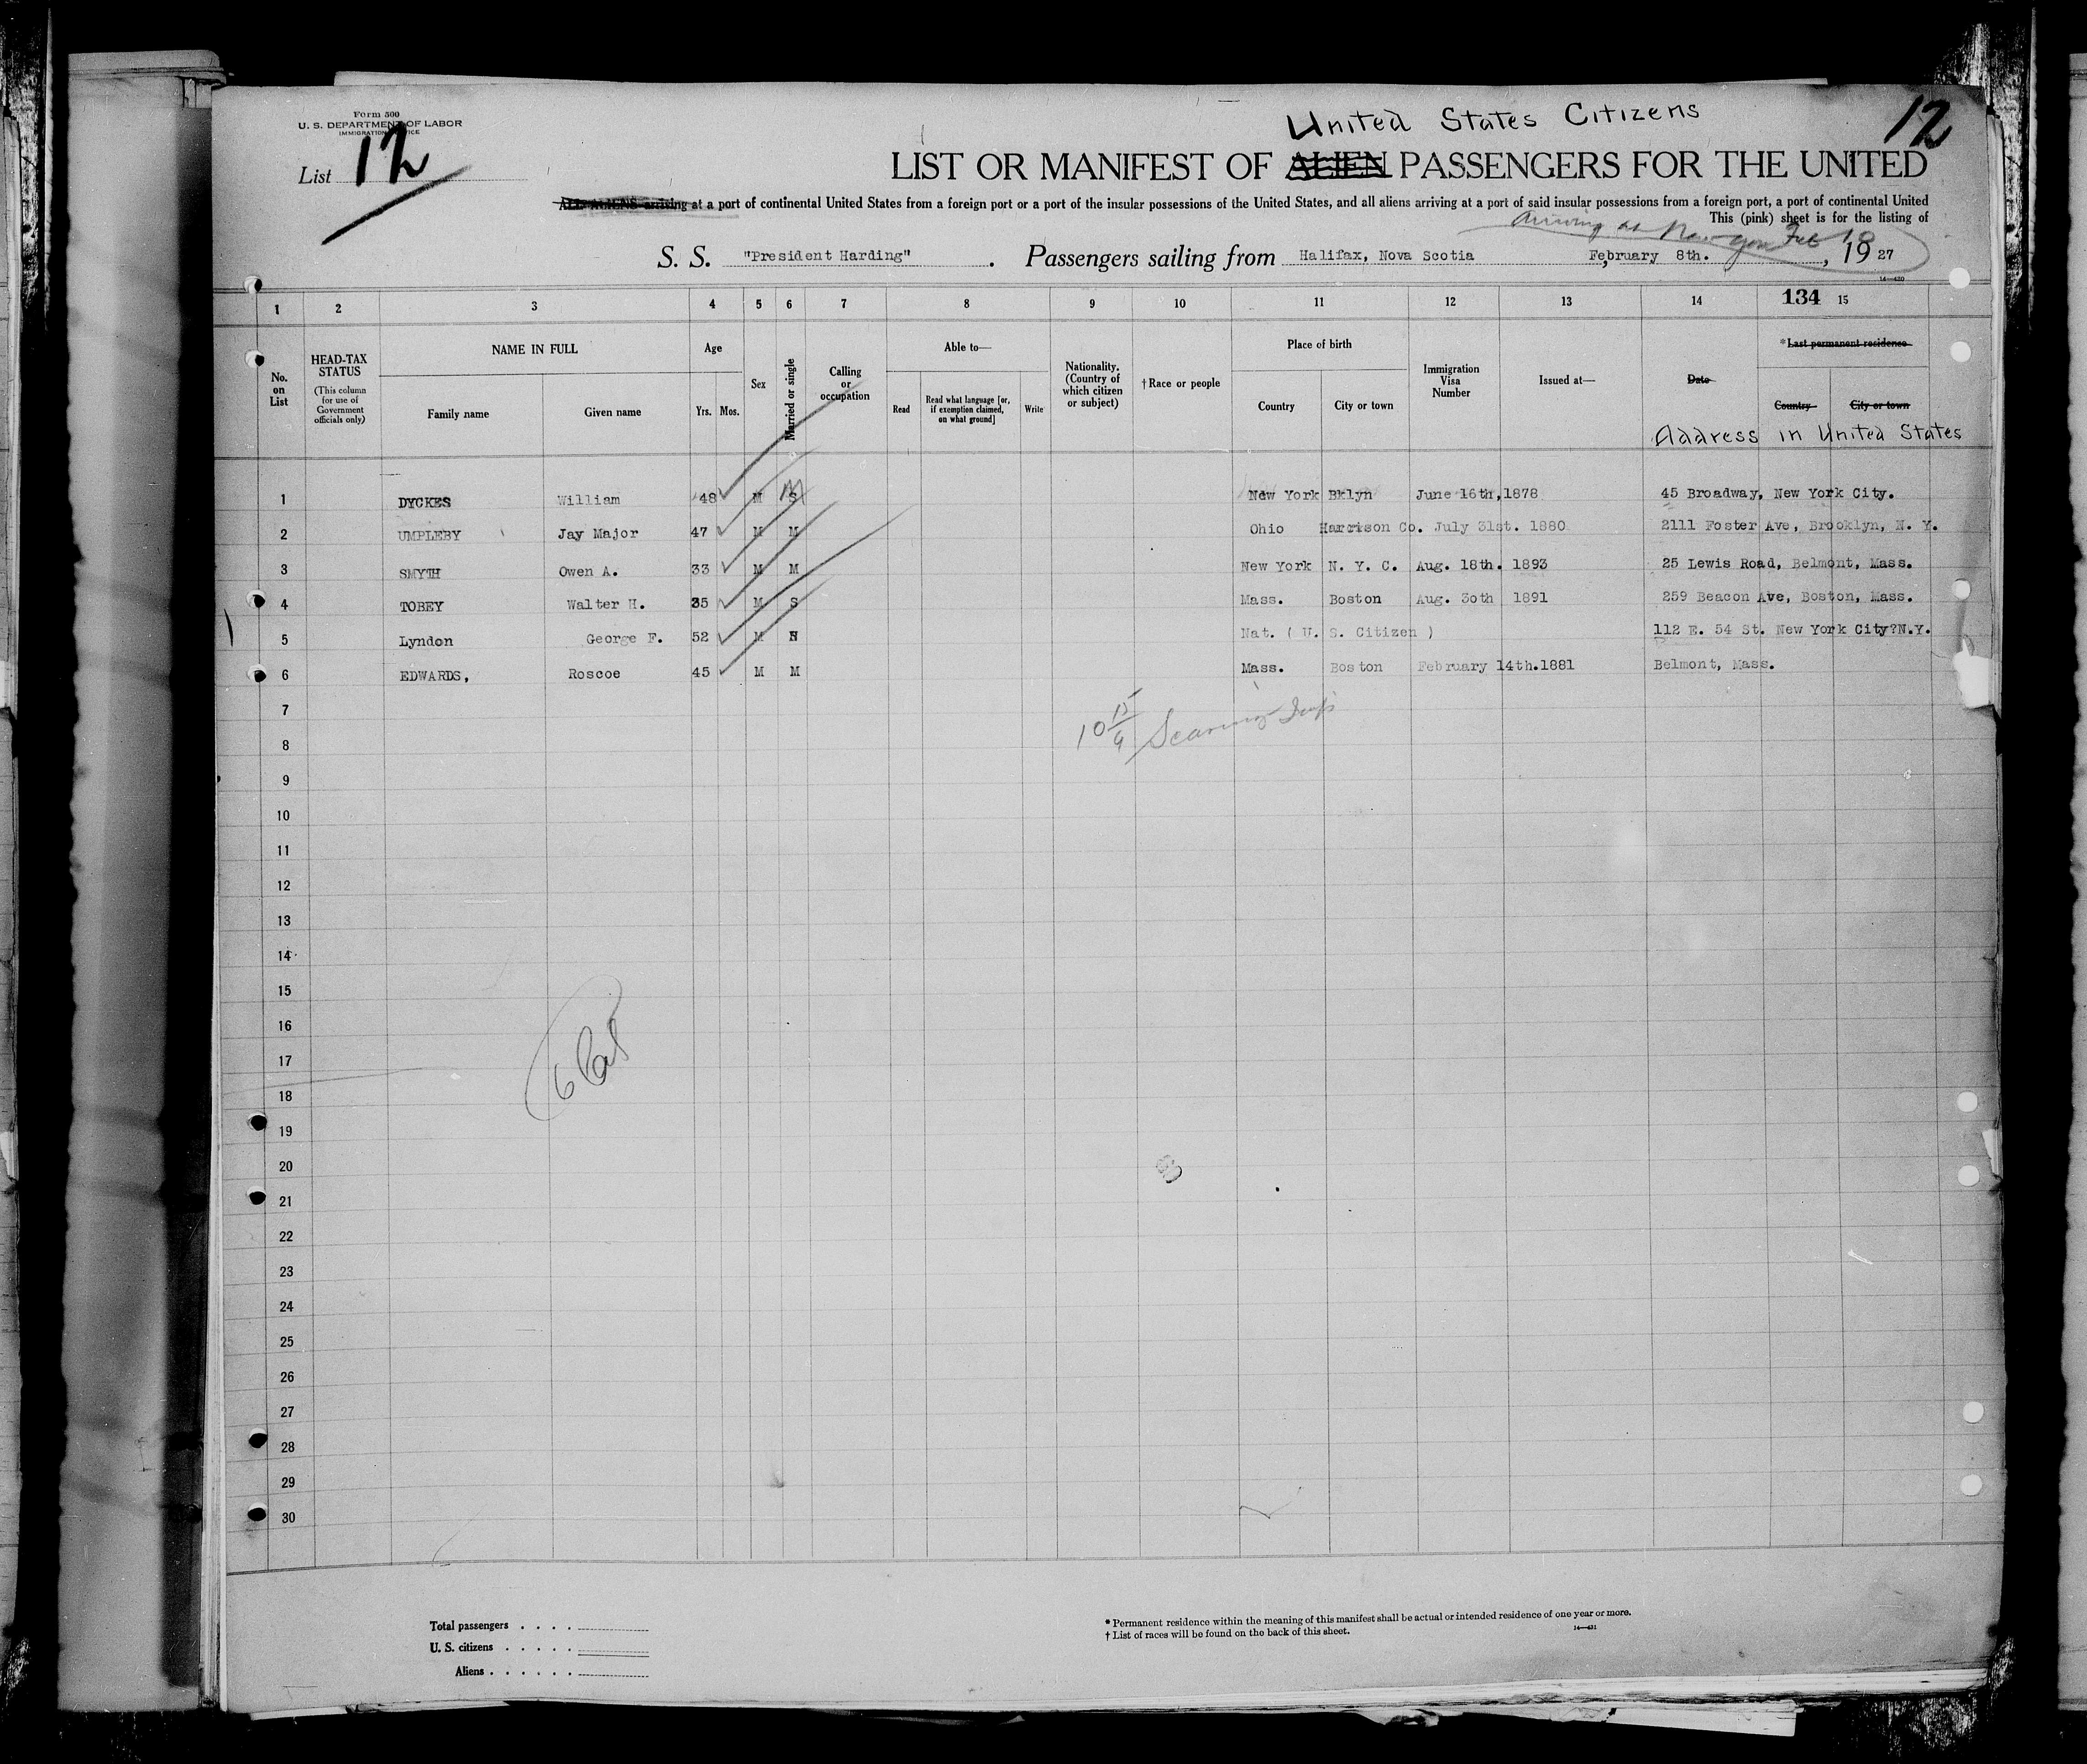 Form 500
U. S. DEPARTMENT OF LABOR
List 12
United States Citizens
12
LIST OR MANIFEST OF ALIEN PASSENGERS FOR THE UNITED
ALL ALIENS arriving at a port of continental United States from a foreign port or a port of the insular possessions of the United States, and all aliens arriving at a port of said insular possessions from a foreign port, a port of continental United
This (pink) sheet is for the listing of
arriving at
S. S. "President Harding" . Passengers sailing from Halifax, Nova Scotia February 8th. , 19 27
14—430
1 2 3 4 5 6 7 8 9 10 11 12 13 14 134 15
No. on List
HEAD-TAX STATUS (This column for use of Government officials only)
NAME IN FULL
Family name Given name
Age
Yrs. Mos.
Sex
Married or single
Calling or occupation
Able to—
Read Read what language [or, if exemption claimed, on what ground] Write
Nationality. (Country of which citizen or subject)
† Race or people
Place of birth
Country City or town
Immigration Visa Number
Issued at—
Date
* Last permanent residence
Country City or town
Address in United States
1 DYCKES William 48 M S M New York Bklyn June 16th,1878 45 Broadway, New York City.
2 UMPLEBY Jay Major 47 M M Ohio Harrison Co. July 31st. 1880 2111 Foster Ave, Brooklyn, N. Y.
3 SMYTH Owen A. 33 M M New York N. Y. C. Aug. 18th. 1893 25 Lewis Road, Belmont, Mass.
4 TOBEY Walter H. 35 M S Mass. Boston Aug. 30th 1891 259 Beacon Ave, Boston, Mass.
5 Lyndon George F. 52 M Nat. ( U. S. Citizen ) 112 E. 54 St. New York City?N.Y.
6 EDWARDS, Roscoe 45 M M Mass. Boston February 14th.1881 Belmont, Mass.
7
8
9
10
11
12
13
14
15
16
17
18
19
20
21
22
23
24
25
26
27
28
29
30
Total passengers . . . .
U. S. citizens . . . . .
Aliens . . . . . .
* Permanent residence within the meaning of this manifest shall be actual or intended residence of one year or more.
† List of races will be found on the back of this sheet.
14—431